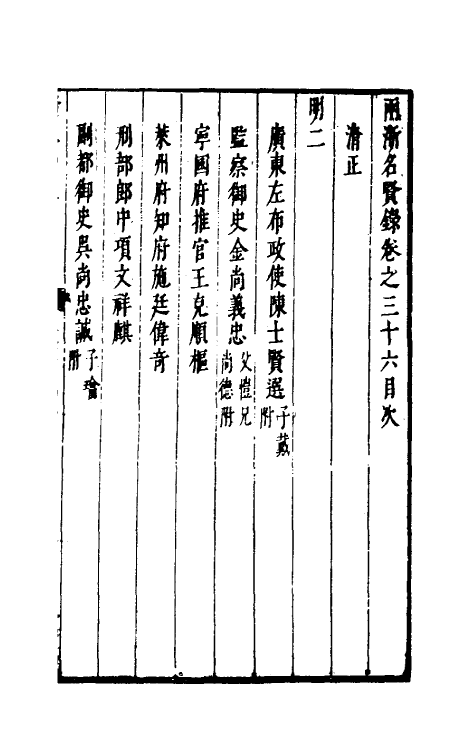 兩浙名賢錄卷之三十六目次
清正
明二
廣東左布政使陳士賢選子戴附
監察御史金尚義忠父愷兄尚德附
寧國府推官王克順樞
萊州府知府施廷偉奇
刑部郎中項文祥麒
副都御史吳尚忠誠子瓊附